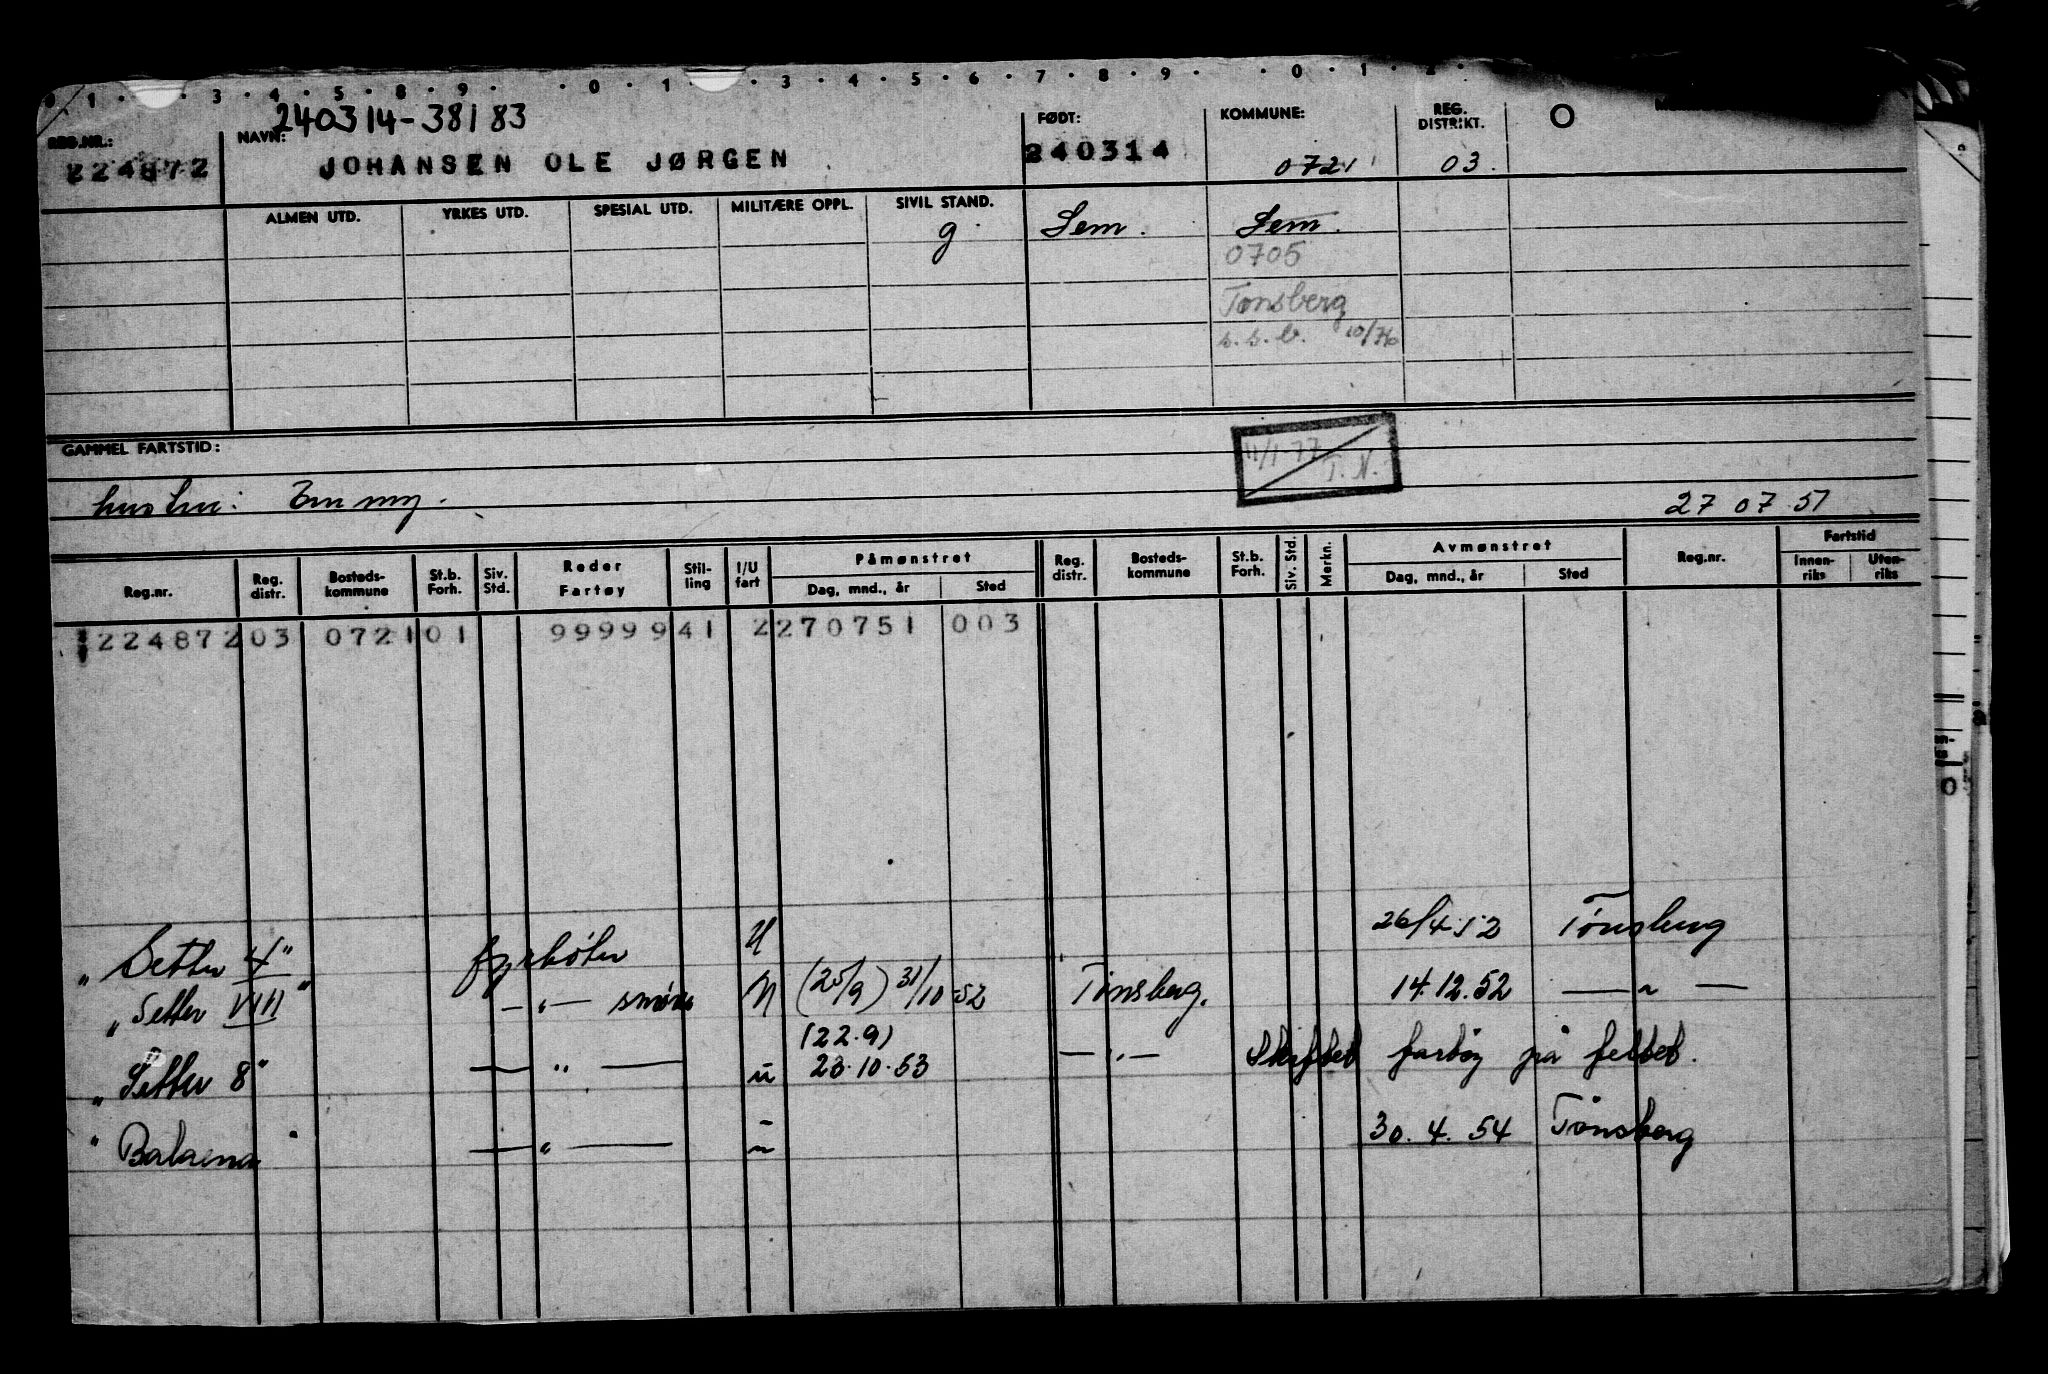 1 · 3 · 4 · 5 · 8 · 9 · · 0 · 1 · · 3 · 4 · 5 · 6 · 7 · 8 · 9 · · 0 · 1 · 2 ·
240314-38183
REG.NR.: NAVN: FØDT: KOMMUNE: REG. DISTRIKT. O
224872 JOHANSEN OLE JØRGEN 240314 0721 03.
ALMEN UTD. YRKES UTD. SPESIAL UTD. MILITÆRE OPPL. SIVIL STAND.
g. Sem. Sem.
0705
Tønsberg
s.s.b. 10/76
GAMMEL FARTSTID:
11/1-77 T.N.
hustru: Emmy. 27 07 51
Reg.nr. Reg. distr. Bosteds-kommune St.b. Forh. Siv. Std. Reder Fartøy Stil-ling I/U fart Påmønstret Dag, mnd., år Sted Reg. distr. Bosteds-kommune St.b. Forh. Siv. Std. Merkn. Avmønstret Dag, mnd., år Sted Reg.nr. Fartstid Innen-riks Uten-riks
224872 03 0721 01 99999 41 2 270751 003
"Setter 4" fyrbøter U 26/4 52 Tønsberg
"Setter VIII" — " — smører U (25/9) 31/10-52 Tønsberg. 14.12.52 — " —
(22.9)
"Setter 8" — " — u 23.10.53 — " — Skiftet fartøy på feltet.
"Balaena" — " — u 30.4.54 Tønsberg